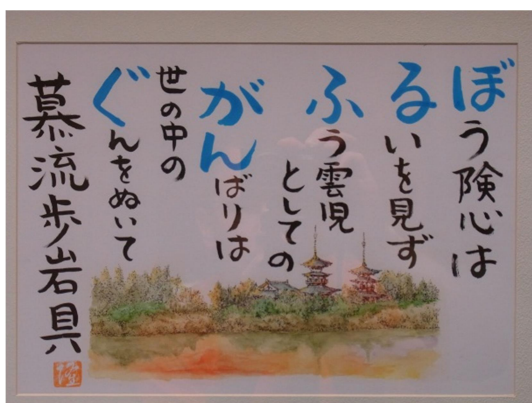 ぼう険心は
るいを見ず
ふう雲児
としての
がんばりは
世の中の
ぐんをぬいて
慕流歩岩具